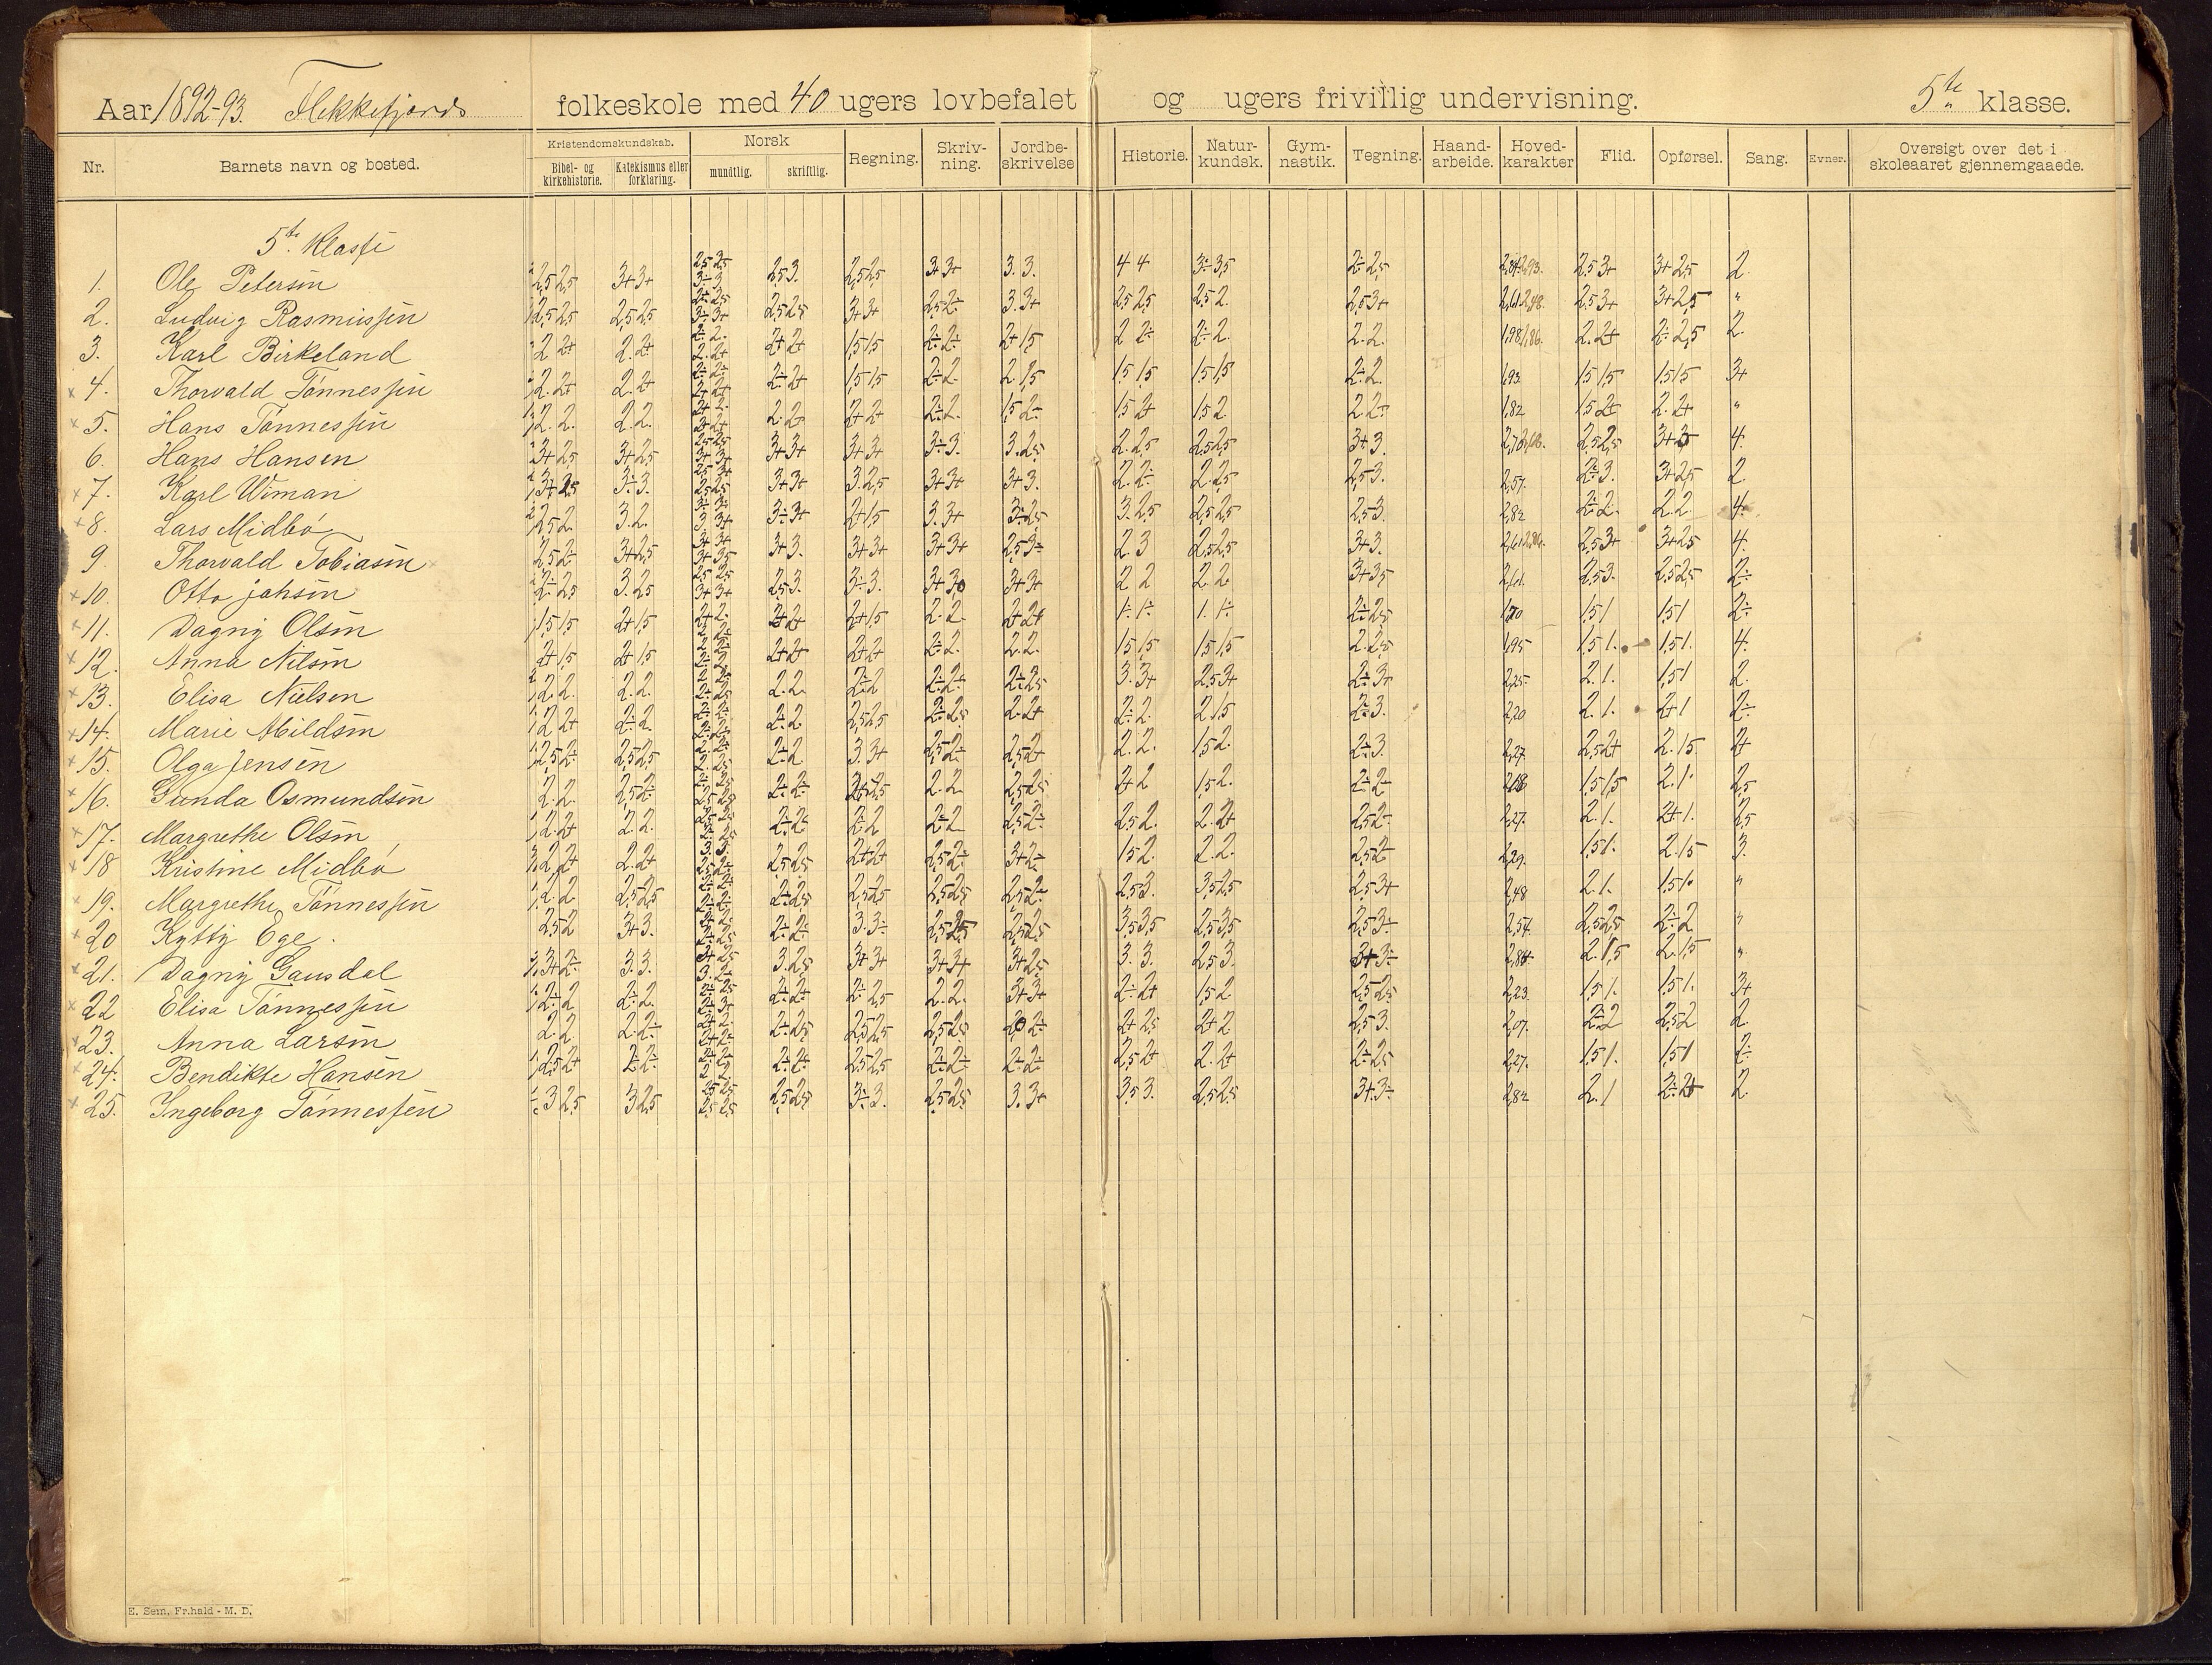 Aar 1892-93. Flekkefjords folkeskole med 40 ugers lovbefalet og ugers frivillig undervisning. 5te klasse.
Nr. Barnets navn og bosted. Kristendomskundskab. Bibel- og kirkehistorie. Katekismus eller forklaring. Norsk mundtlig. skriftlig. Regning. Skriv-ning. Jordbe-skrivelse Historie. Natur-kundsk. Gym-nastik. Tegning. Haand-arbeide. Hoved-karakter Flid. Opførsel. Sang. Evner. Oversigt over det i skoleaaret gjennemgaaede.
5te Klasse
1. Ole Petersen 2,5 2,5 3+ 3+ 2,5 3. 2,5 2,5 3+ 3+ 3. 3. 4 4 3÷ 3,5 2÷ 2,5 2,5 3+ 3+ 2,5 2.
2. Ludvig Rasmussen 2,5 2,5 2,5 2,5 2,5 2,5 3+ 3+ 2,5 2÷ 3. 3+ 2,5 2,5 2,5 2. 2,5 3+ 2,5 3+ 3+ 2,5 "
3. Karl Birkeland 2 2+ 2. 2+ 2+ 2+ 1,5 1,5 2÷ 2÷ 2+ 1,5 2 2÷ 2÷ 2. 2. 2. 2. 2+ 2÷ 2,5 2.
× 4. Thorvald Tønnessen 2. 2+ 2. 2+ 2÷ 2+ 1,5 1,5 2÷ 2. 2. 1,5 1,5 1,5 1,5 1,5 2÷ 2. 1,93 1,5 1,5 1,5 1,5 3+
× 5. Hans Tønnessen 2. 2. 2. 2. 2. 2+ 2+ 2+ 2÷ 2. 1,5 2÷ 1,5 2+ 1,5 2. 2. 2÷ 1,82 1,5 2+ 2. 2+ "
6. Hans Hansen 3+ 2,5 3+ 2,5 3+ 3+ 3+ 3+ 3÷ 3. 3. 2,5 2. 2,5 2,5 2,5 3+ 3. 2,5 2,5 3+ 3 4.
× 7. Karl Wiman 3+ 2,5 3÷ 3. 3+ 3+ 3. 2,5 3+ 3+ 3+ 3. 2. 2÷ 2. 2,5 2,5 3. 2,57. 2÷ 3. 3+ 2,5 2
× 8. Lars Midbø 2,5 2. 3. 2. 3÷ 3+ 2+ 1,5 3. 3+ 3÷ 2,5 3. 2,5 2,5 2,5 2,5 3. 2,82 2÷ 2. 2. 2. 4.
9. Thorvald Tobiasen 2,5 2÷ 3+ 2,5 3+ 3. 3+ 3+ 3+ 3+ 2,5 3÷ 2. 3 2,5 2,5 3+ 3. 2,5 3+ 3+ 2,5 4.
× 10. Otto Johsen 2÷ 2,5 3. 2,5 2,5 3. 3÷ 3. 3+ 3 3+ 3+ 2 2 2 2. 3+ 3,5 2,61. 2,5 3. 2,5 2,5 2÷
× 11. Dagny Olsen 1,5 1,5 2+ 1,5 2+ 2+ 2+ 1,5 2. 2. 2+ 2+ 1÷ 1÷ 1. 1÷ 2÷ 2,5 1,5 1 1,5 1 2÷
× 12. Anna Nilsen 2+ 1,5 2+ 1,5 2+ 2+ 2+ 2+ 2÷ 2. 2. 2. 1,5 1,5 1,5 1,5 2. 2,5 1,95 1,5 1. 1,5 1. 4.
× 13. Elisa Nielsen 2 2. 2. 2. 2. 2. 2÷ 2 2÷ 2+ 2÷ 2,5 3. 3+ 2,5 3+ 2÷ 3+ 2,25 2. 1. 1,5 1 2.
× 14. Marie Mildsen 2 2+ 2÷ 2. 2÷ 2 2,5 2,5 2÷ 2,5 2. 2+ 2÷ 2. 2 1,5 2÷ 3. 2,20 2. 1. 2+ 1 2÷
× 15. Olga Jensen 2,5 2÷ 2,5 2,5 2÷ 2 3. 3+ 2,5 2÷ 2,5 2+ 2. 2. 1,5 2. 2÷ 3. 2,27. 2,5 2+ 2. 1,5 2+
× 16. Gunda Osmundsen 2. 2. 2,5 2÷ 2÷ 2÷ 2. 2. 2,5 2,5 2+ 2 1,5 2. 2÷ 2÷ 1,5 1,5 2. 1. 2,5
× 17. Margrethe Olsen 2. 2+ 2. 2. 2÷ 2÷ 2÷ 2 2÷ 2 2,5 2÷ 2,5 2. 2. 2+ 2,5 2÷ 2,27. 2. 1. 2+ 1. 2,5
× 18 Kristine Midbø 2 2+ 2. 2+ 2,5 2,5 2+ 2+ 2,5 2÷ 3+ 2÷ 1,5 2. 2. 2. 2,5 2÷ 2,29. 1,5 1. 2. 1,5 3.
× 19. Margrethe Tønnessen 2. 2 2,5 2,5 2÷ 2,5 2,5 2,5 2,5 2,5 2,5 2÷ 2,5 3. 3,5 2,5 2,5 3+ 2,48 2. 1. 1,5 1. "
× 20 Kytty Ege. 2,5 2 3+ 3. 2÷ 2÷ 3. 3÷ 2,5 2,5 2,5 2,5 3,5 3,5 2,5 3,5 2,5 3÷ 2,54. 2,5 2,5 2÷ 2 "
× 21. Dagny Gausdal 3+ 2÷ 3. 3. 3. 2,5 3+ 3+ 3+ 3+ 3+ 2,5 3. 3. 2,5 3. 3+ 3÷ 2. 1,5 2. 1,5 "
× 22 Elisa Tønnessen 2÷ 2 2÷ 2. 2÷ 2÷ 2÷ 2,5 2. 2. 3+ 3+ 2÷ 2+ 1,5 2 2,5 2,5 2,23. 1,5 1. 1,5 1. 3+
× 23. Anna Larsen 2. 2 2. 2÷ 2÷ 2,5 2,5 2,5 2,5 2,5 2÷ 2+ 2,5 2+ 2 2,5 3. 2,07. 2÷ 2 2,5 2 2.
× 24. Bendikte Hansen 2,5 2+ 2÷ 2÷ 2÷ 2÷ 2,5 2,5 2÷ 2÷ 2÷ 2÷ 2,5 2+ 2. 2+ 2÷ 2,5 2,27. 1,5 1. 1,5 1 2÷
× 25. Ingeborg Tønnessen 3 2,5 3 2,5 2,5 2,5 3÷ 3. 2,5 2,5 3. 3+ 3,5 3. 2,5 2,5 3+ 3÷ 2,82 2. 1 3÷ 2+ 2.
E. Sem, Fr.hald - M. D.